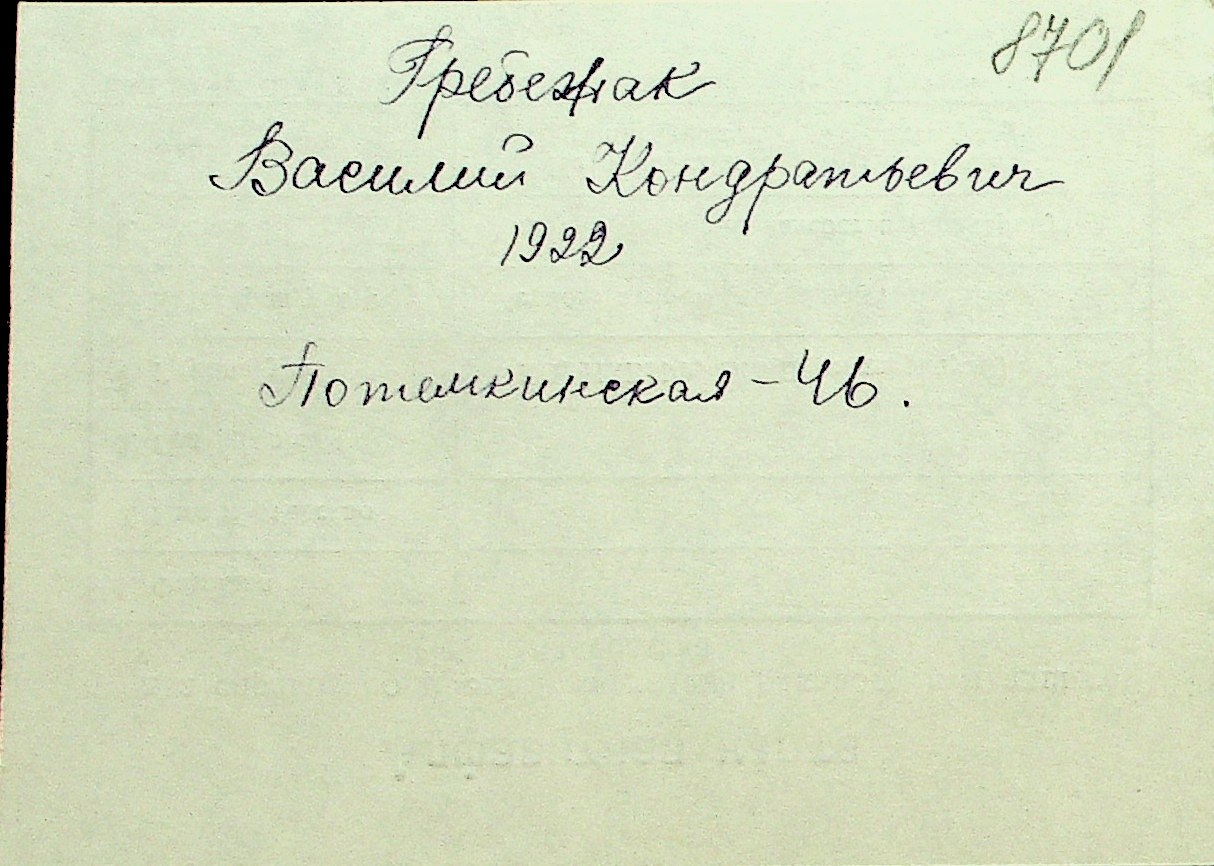 8701
Гребежак
Василий Кондратьевич
1922
Потемкинская – 46.